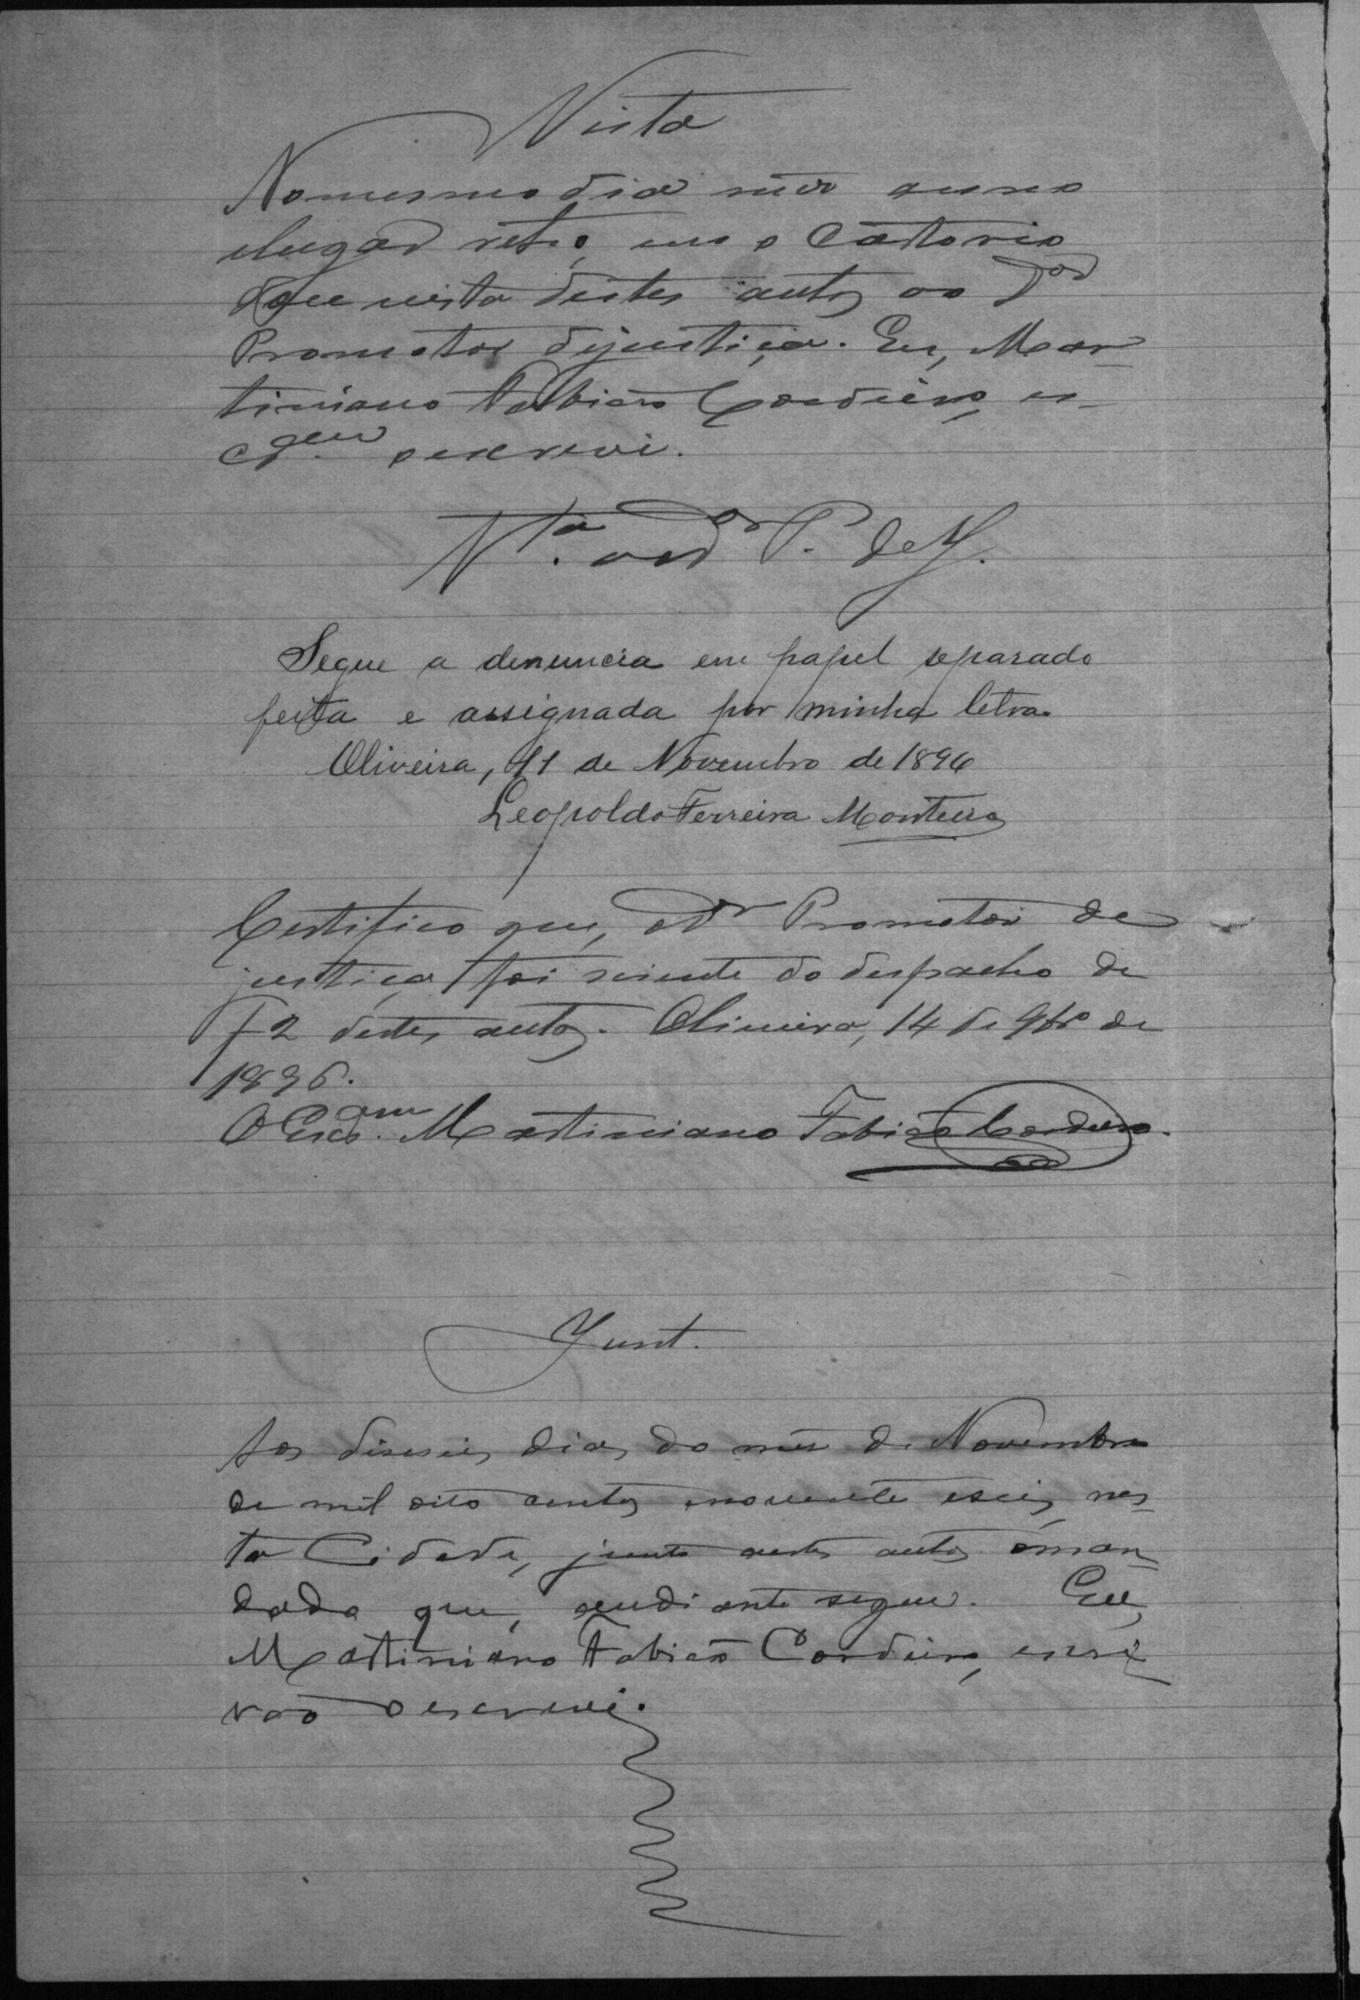 Vista
No mesmo dia mez anno
e lugar retro, em o Cartorio
que vista destes autos ao Dor
Promotor dijustiça. Eu, Mar-
timiano Fabião Cordeiro, es-
o escrevi.
Vta. ao Dr P. de J.
Segue a denuncia em papel separado
feita e assignada por minha letra.
Oliveira, 11 de Novembro de 1896
Leopoldo Ferreira Monteiro
Certifico que, o Dr Promotor de
justiça foi sciente do despacho de
f 2 destes autos. Oliveira, 14 de 9bro de
1896.
O Escam. Martimiano Fabião Cordeiro.
Junt.
Aos diseseis dias do mez de Novembro
de mil oito centos enoventa eseis, nes-
ta Cidade, junto aestes autos oman-
dado que, audiante segue. Eu,
Martimiano Fabião Cordeiro, escri-
vão o escrevi.